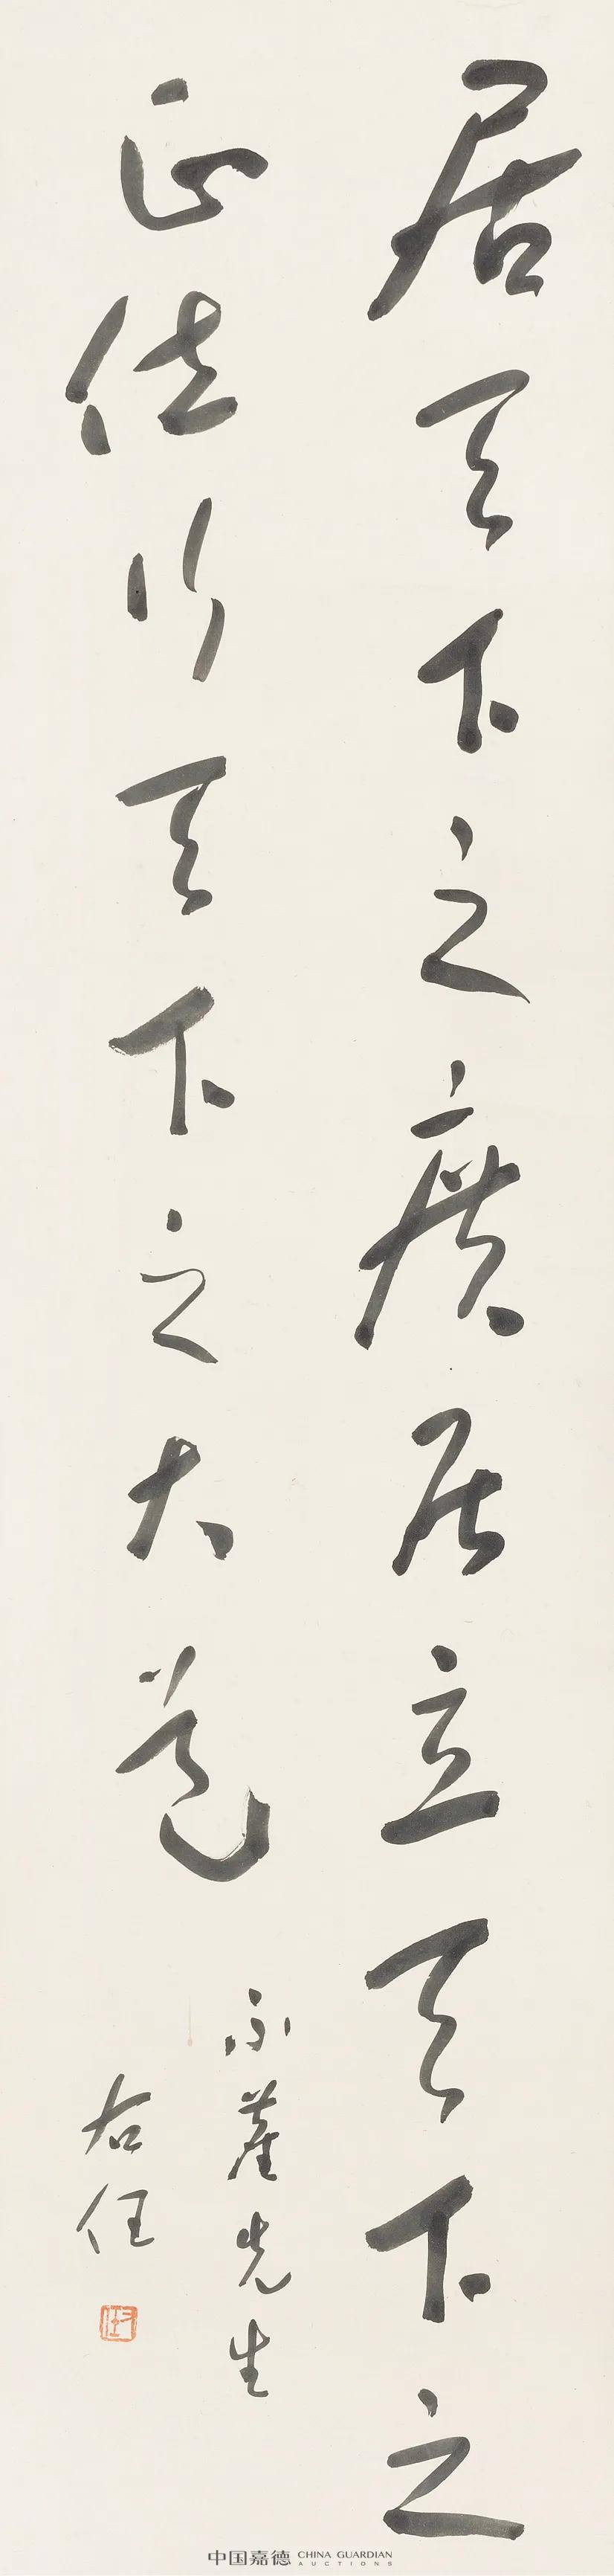 居天下之廣居立天下之
正位行天下之大道
先生
右任
右任
中国嘉德 CHINA GUARDIAN
AUCTIONS